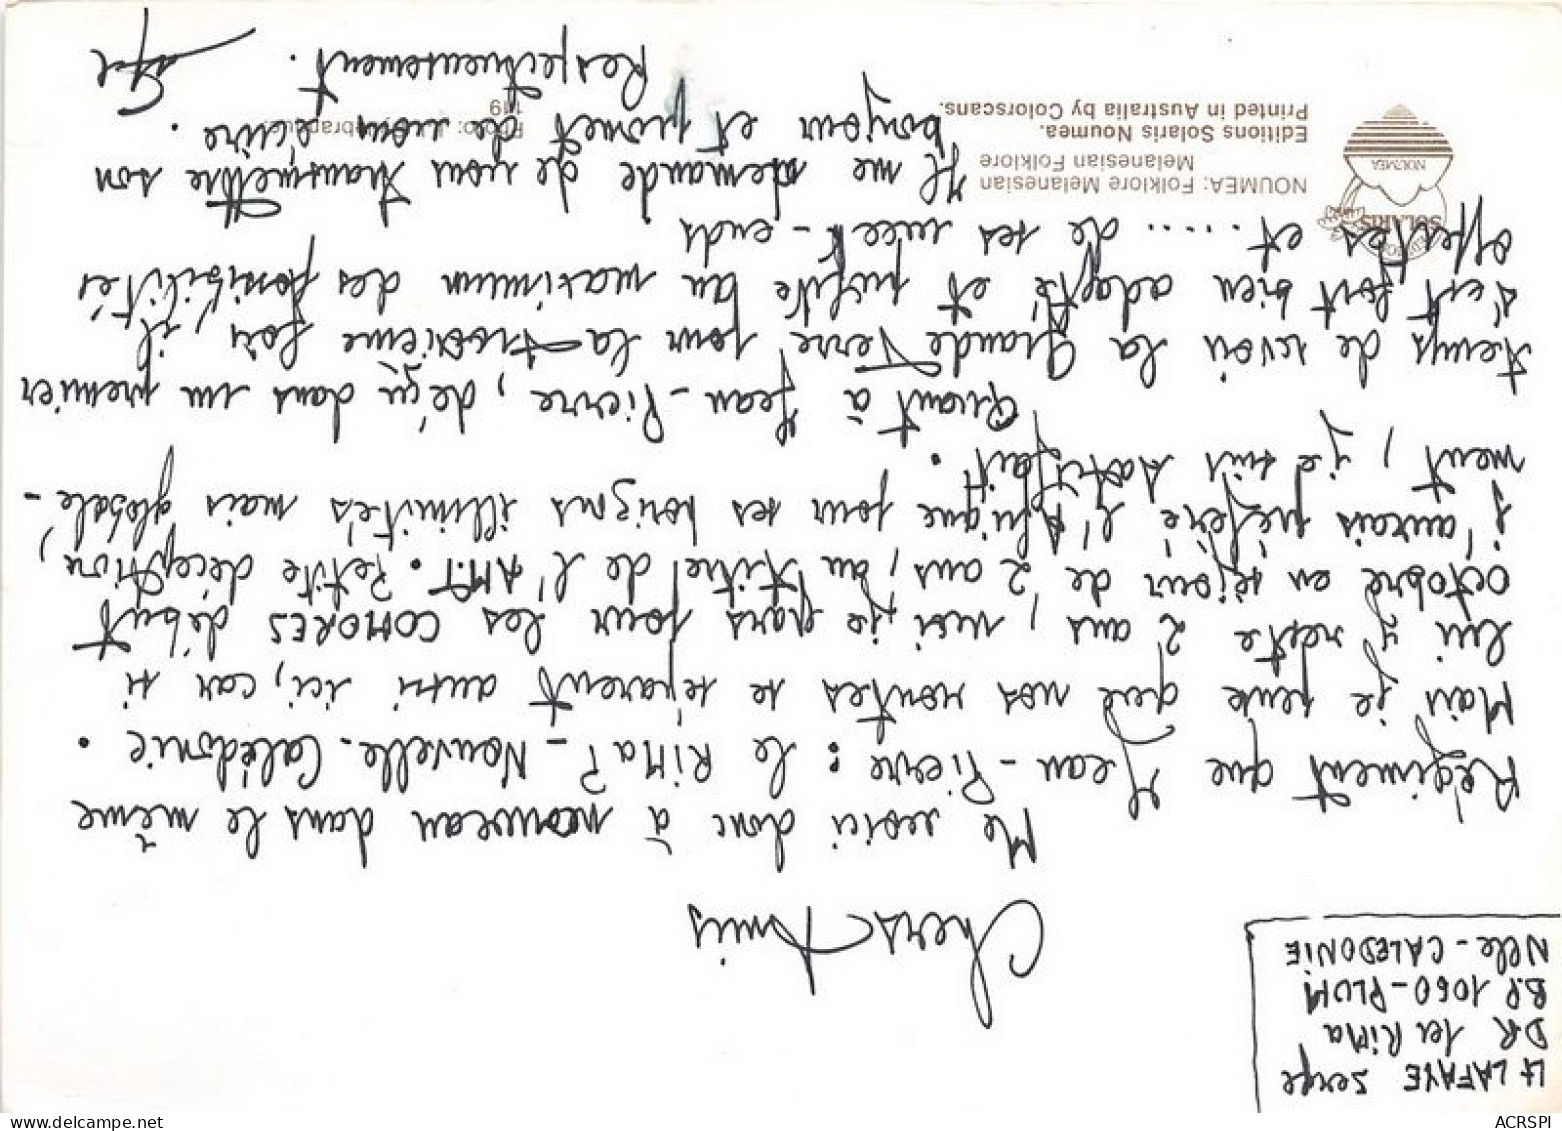 Lt LAFAYE Serge
DR 1er RIMa
B.P 1060 - PLUM
Nlle - CALEDONIE
Chers Amis
Me voici donc à nouveau dans le même
Régiment que Jean-Pierre : le RIMaP - Nouvelle-Calédonie.
Mais je pense que nos routes se séparent aussi ici, car si
lui y reste 2 ans, moi je pars pour les COMORES début
octobre en séjour de 2 ans, au titre de l'AMT. Petite déception,
j'aurais préféré l'Afrique pour ses horizons illimités mais globale-
ment, je suis satisfait.
Quant à Jean-Pierre, déçu dans un premier
temps de revoir la Grande Terre pour la troisième fois, il
s'est fort bien adapté et profite au maximum des possibilités
offertes et ..... de ses week-ends
Il me demande de vous transmettre son
bonjour et promet de vous écrire.
Respectueusement.
SOLARIS
NOUMEA
NOUMEA: Folklore Melanesian
Melanesian Folklore
Editions Solaris Noumea.
Printed in Australia by Colorscans.
119
ACRSPI